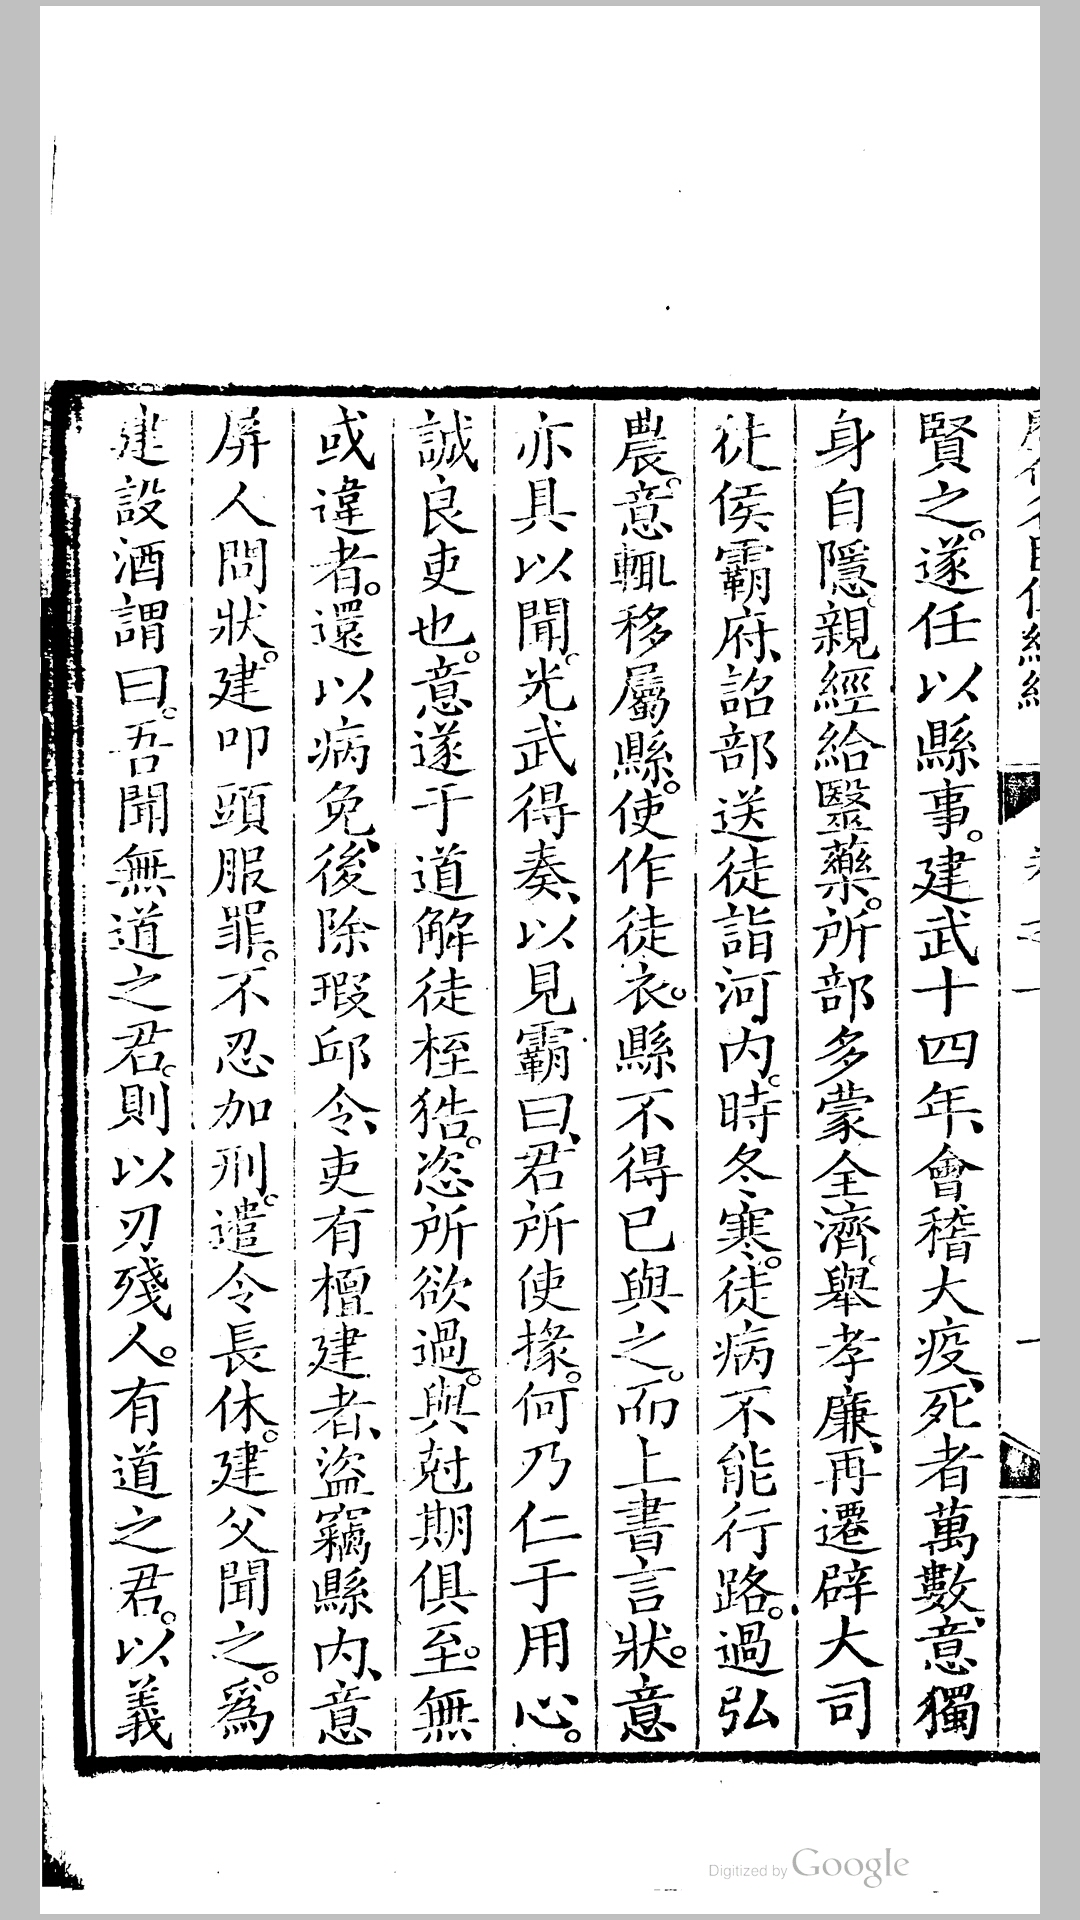 賢之。遂任以縣事。建武十四年、會稽大疫、死者萬數、意獨
身自隱。親經給醫藥。所部多蒙全濟。舉孝廉、再遷辟大司
徒侯霸府、詔部送徒詣河內。時冬寒。徒病不能行路。過弘
農。意輒移屬縣。使作徒衣。縣不得已與之。而上書言狀。意
亦具以聞。光武得奏、以見霸曰、君所使掾。何乃仁于用心。
誠良吏也。意遂于道解徒桎梏。恣所欲過。與尅期俱至。無
或違者。還以病免、後除瑕邱令、吏有檀建者、盜竊縣內、意
屏人問狀。建叩頭服罪。不忍加刑。遣令長休。建父聞之。爲
建設酒謂曰。吾聞無道之君。則以刃殘人。有道之君。以義
Digitized by Google